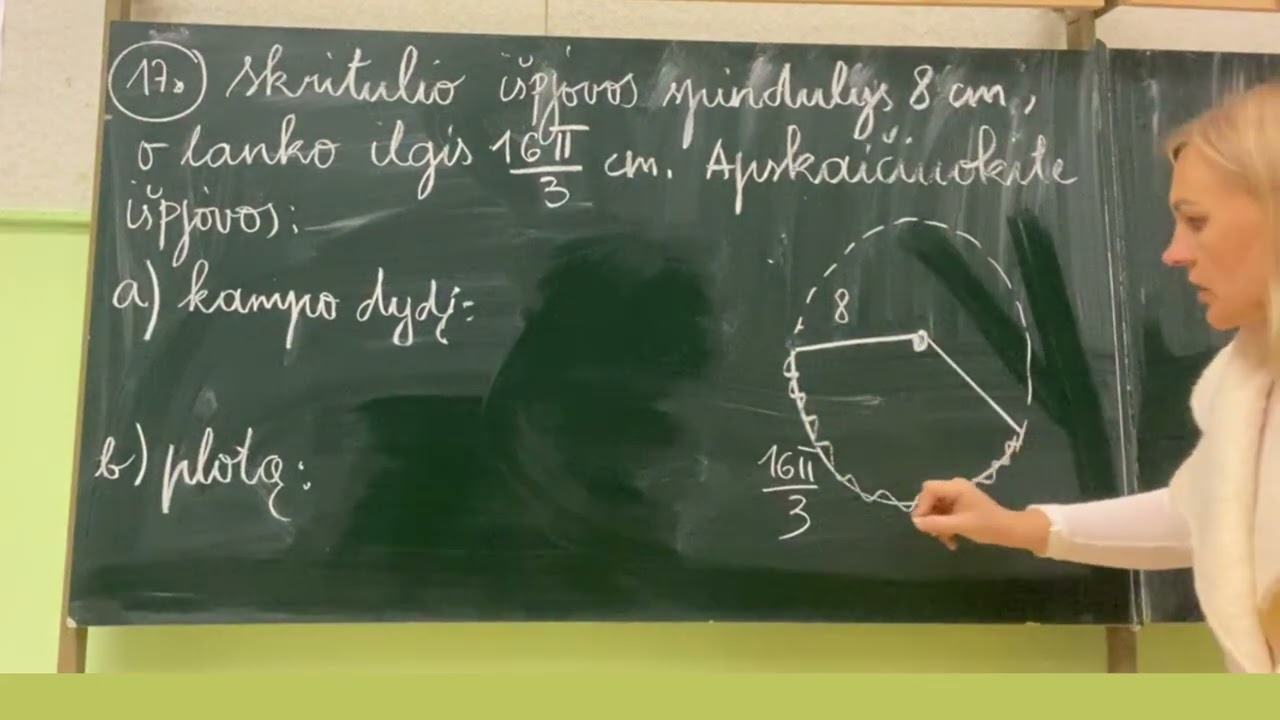 17. Skritulio išpjovos spindulys 8 cm,
o lanko ilgis 16π/3 cm. Apskaičiuokite
išpjovos:
a) kampo dydį:
b) plotą:
8
16π/3